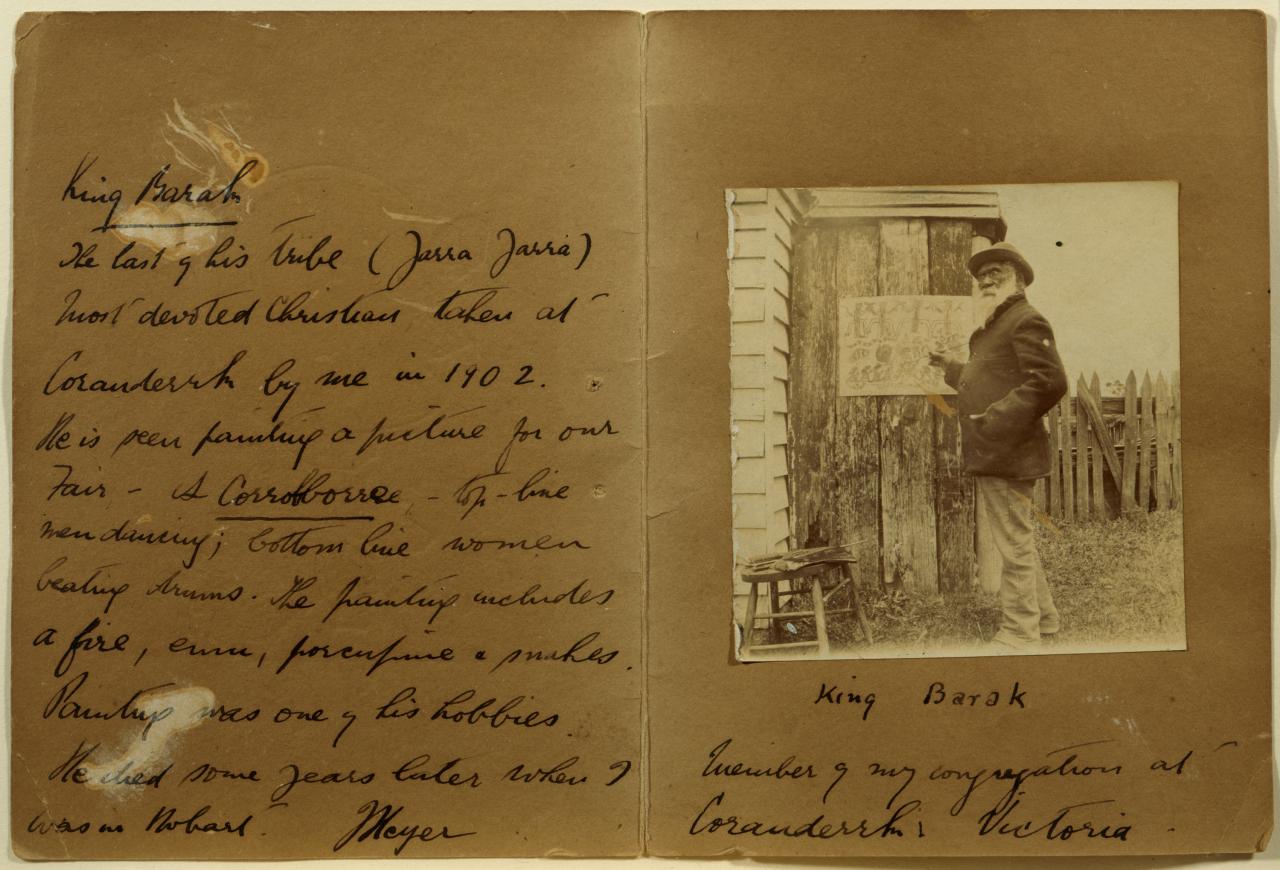 King Barak
The last of his tribe (Jarra Jarra)
Most devoted Christian taken at
Coranderrk by me in 1902.
He is seen painting a picture for our
Fair - A Corrobborree - top-line
men dancing; bottom line women
beating drums. The painting includes
a fire, emu, porcupine & snakes.
Painting was one of his hobbies
He died some years later when I
was in Hobart. Meyer
King Barak
Member of my congregation at
Coranderrk: Victoria.